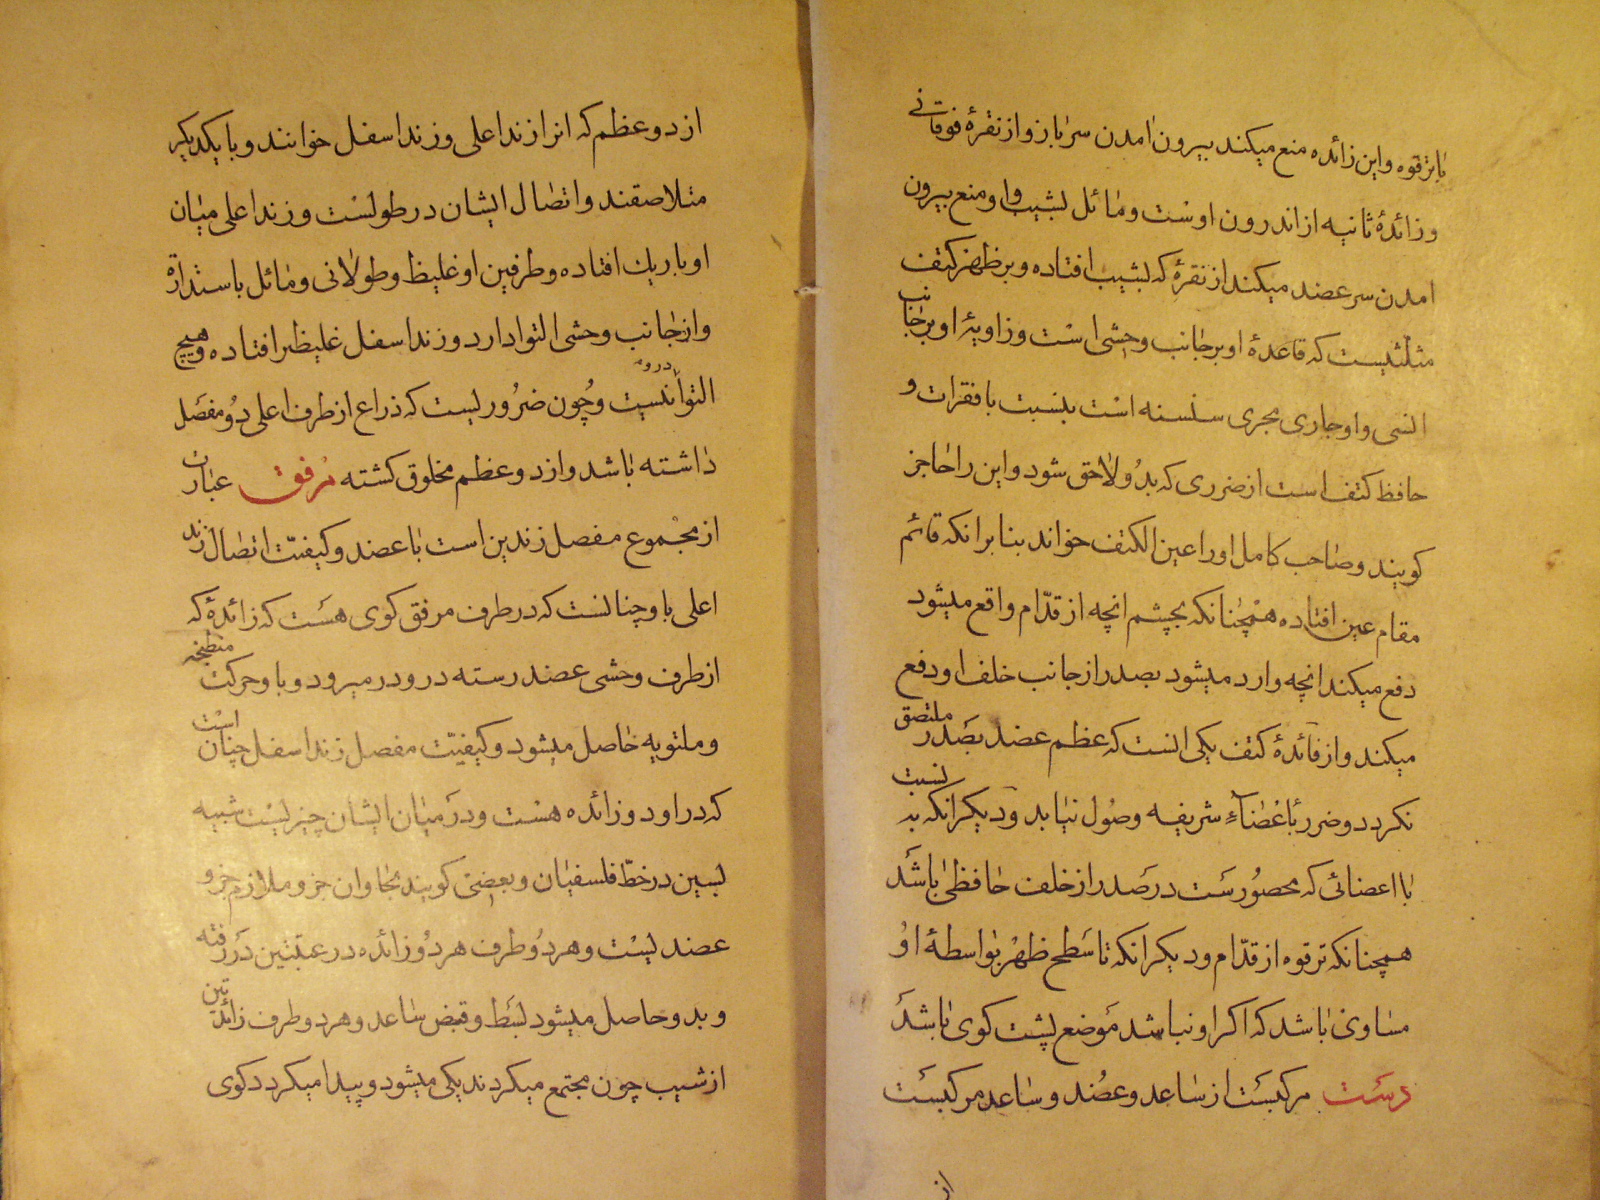 با ترقوه و این زائده منع میکند بیرون امدن سر بازو از نقرهٔ فوقانی
و زائدهٔ ثانیه از اندرون اوست و مائل بشیب و او منع بیرون
امدن سر عضد میکند از نقرهٔ که بشیب افتاده و بر ظهر کتف
مثلثیست که قاعدهٔ او بر جانب وحشی است و زاویهٔ او بر جانب
انسی و او جاری مجری سنسنه است بنسبت با فقرات و
حافظ کتف است از ضرری که بدو لاحق شود و این را حاجز
کویند و صاحب کامل او را عین الکتف خواند بنا برانکه قائم
مقام عین افتاده همچنانکه بچشم انچه از قدّام واقع میشود
دفع میکند انچه وارد میشود بصدر از جانب خلف او دفع
میکند و از فائدهٔ کتف یکی انست که عظم عضد بصدر ملتصق
نکردد و ضرر باعضآء شریفه وصول نیابد و دیکر انکه نسبت به
با اعضائی که محصورست در صدر از خلف حافظی باشد
همچنانکه ترقوه از قدّام و دیکر انکه تا سطح ظهر بواسطهٔ او
مساوی باشد که اکر او نباشد موضع پشت کوی باشد
دست مرکبست از ساعد و عضد و ساعد مرکبست
از
از دو عظم که انرا زند اعلی و زند اسفل خوانند و با یکدیکر
متلاصقند و اتصال ایشان در طولست و زند اعلی میان
او باریک افتاده و طرفین او غلیظ و طولانی و مائل باستدارة
و از جانب وحشی التوا دارد و زند اسفل غلیظتر افتاده و هیچ
التوا درو نیست و چون ضرور یست که ذراع از طرف اعلی دو مفصل
داشته باشد و از دو عظم مخلوق کشته مرفق عبارت
از مجموع مفصل زندین است با عضد و کیفیّت اتصال زند
اعلی با و چنانست که در طرف مرفق کوی هست که زائدهٔ که
از طرف وحشی عضد رسته درو در میرود و با و حرکت منطحه
و ملتویه حاصل میشود و کیفیّت مفصل زند اسفل چنان است
که در او دو زائده هست و در میان ایشان چیز یست شبیه
بسین در خطّ فلسفیان و بعضی کویند بجا و ان جزو ملازم جزو
عضد یست و هر دو طرف هر دو زائده در عتبتین در رفته
و بدو حاصل میشود بسط و قبض ساعد و هر دو طرف زائدتین
از شیب چون مجتمع میکردند یکی میشود و پیدا میکردد کوی